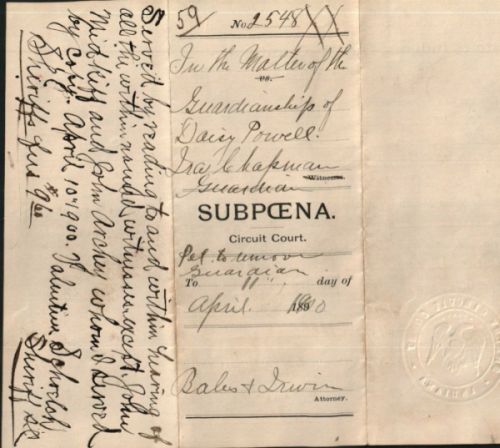 59
No. 2548
In the Matter of the
vs.
Guardianship of
Daisy Powell.
Ira Chapman
Witnesses.
Guardian
SUBPŒNA.
Circuit Court.
Pet. to remove
Guardian
To 11" day of
April 1900
Bales & Irwin
Attorney.
Served by reading to and within hearing of
all the within named witnesses except John
Midkiff and John Archey whom I served
by copy April 10th 1900.
Sheriffs fees $9.60
Sheriff